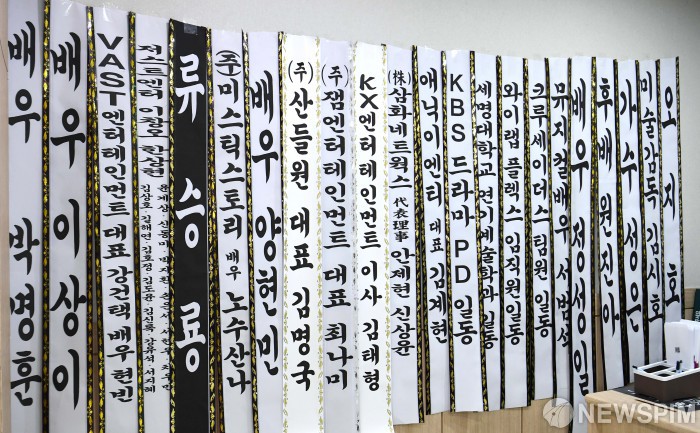 배우 박명훈
배우 이상이
VAST엔터테인먼트 대표 강건택 배우 현빈
저스트엔터 이창오 한상현
윤계상·신동미·박지환
김상호·김해연·김호정·김도윤·김신록·강유석·서지혜
류승룡
(주)미스틱스토리 배우 노수산나
배우 양현빈
(주)산들원 대표 김명국
(주)잼엔터테인먼트 대표 최나미
KX엔터테인먼트 이사 김태형
(株)삼화네트웍스 代表理事 안제현 신상윤
애닉이엔티 대표 김계현
KBS 드라마 PD 일동
세명대학교 연기예술학과 일동
와이랩 플렉스 임직원일동
크루세이더스팀원 일동
뮤지컬배우 서범석
배우 정성일
후배 원진아
가수 성은
미술감독 김시호
오지호
NEWSPIM